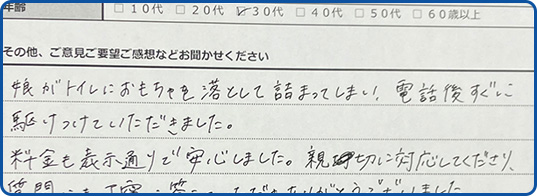 年齢 □10代 □20代 ☑30代 □40代 □50代 □60歳以上
その他、ご意見ご要望ご感想などお聞かせください
娘がトイレにおもちゃを落として詰まってしまい、電話後すぐに
駆けつけていただきました。
料金も表示通りで安心しました。親切に対応してくださり、
質問にも丁寧に答えて
ありがとうございました